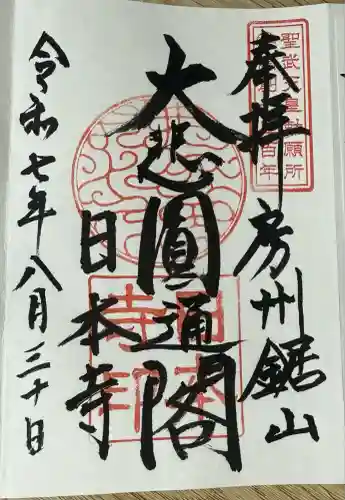 奉拝
房州鋸山
聖武天皇勅願所
百年
大悲圓通閣
日本寺
日本寺印
令和七年八月三十日